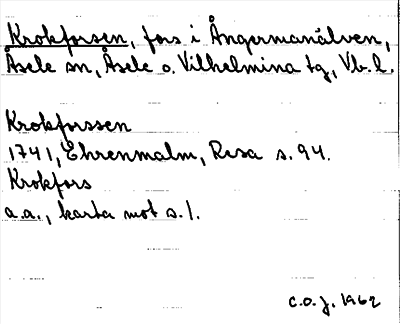 Krokforsen, fors i Ångermanälven,
Åsele sn, Åsele o. Vilhelmina tg, Vb. l.
Krokforssen
1741, Ehrenmalm, Resa s. 94.
Krokfors
a.a., karta mot s. 1.
C.O.J. 1962